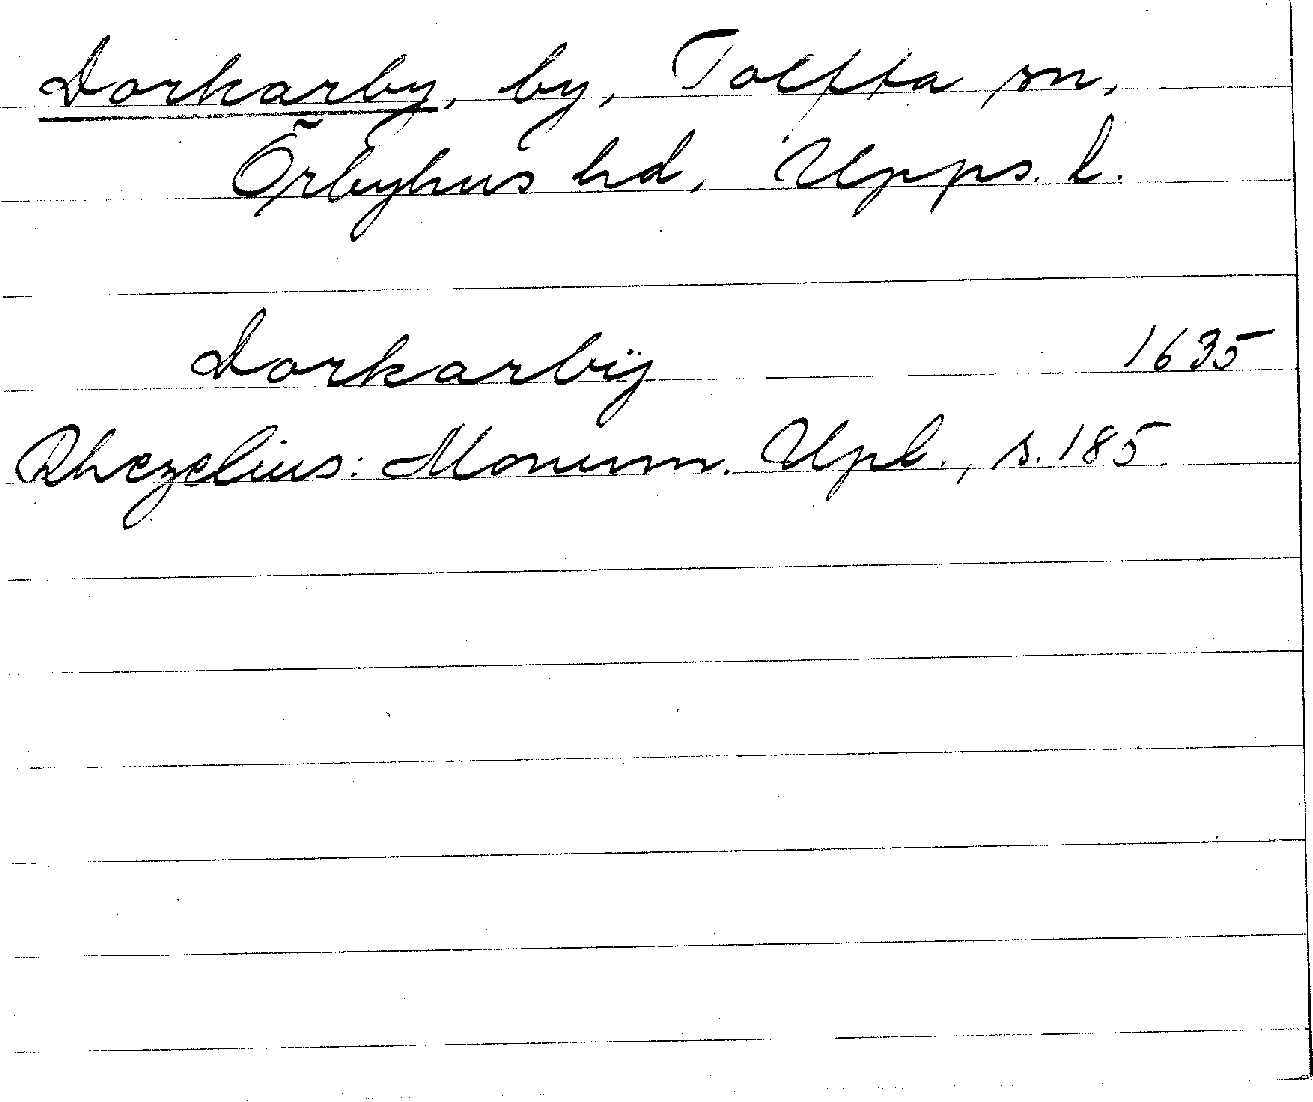 Dorkarby, by, Tolfta sn,
Örbyhus hd, Upps. l.
Dorkarbÿ 1635
Rhezelius: Monum. Upl., s. 185